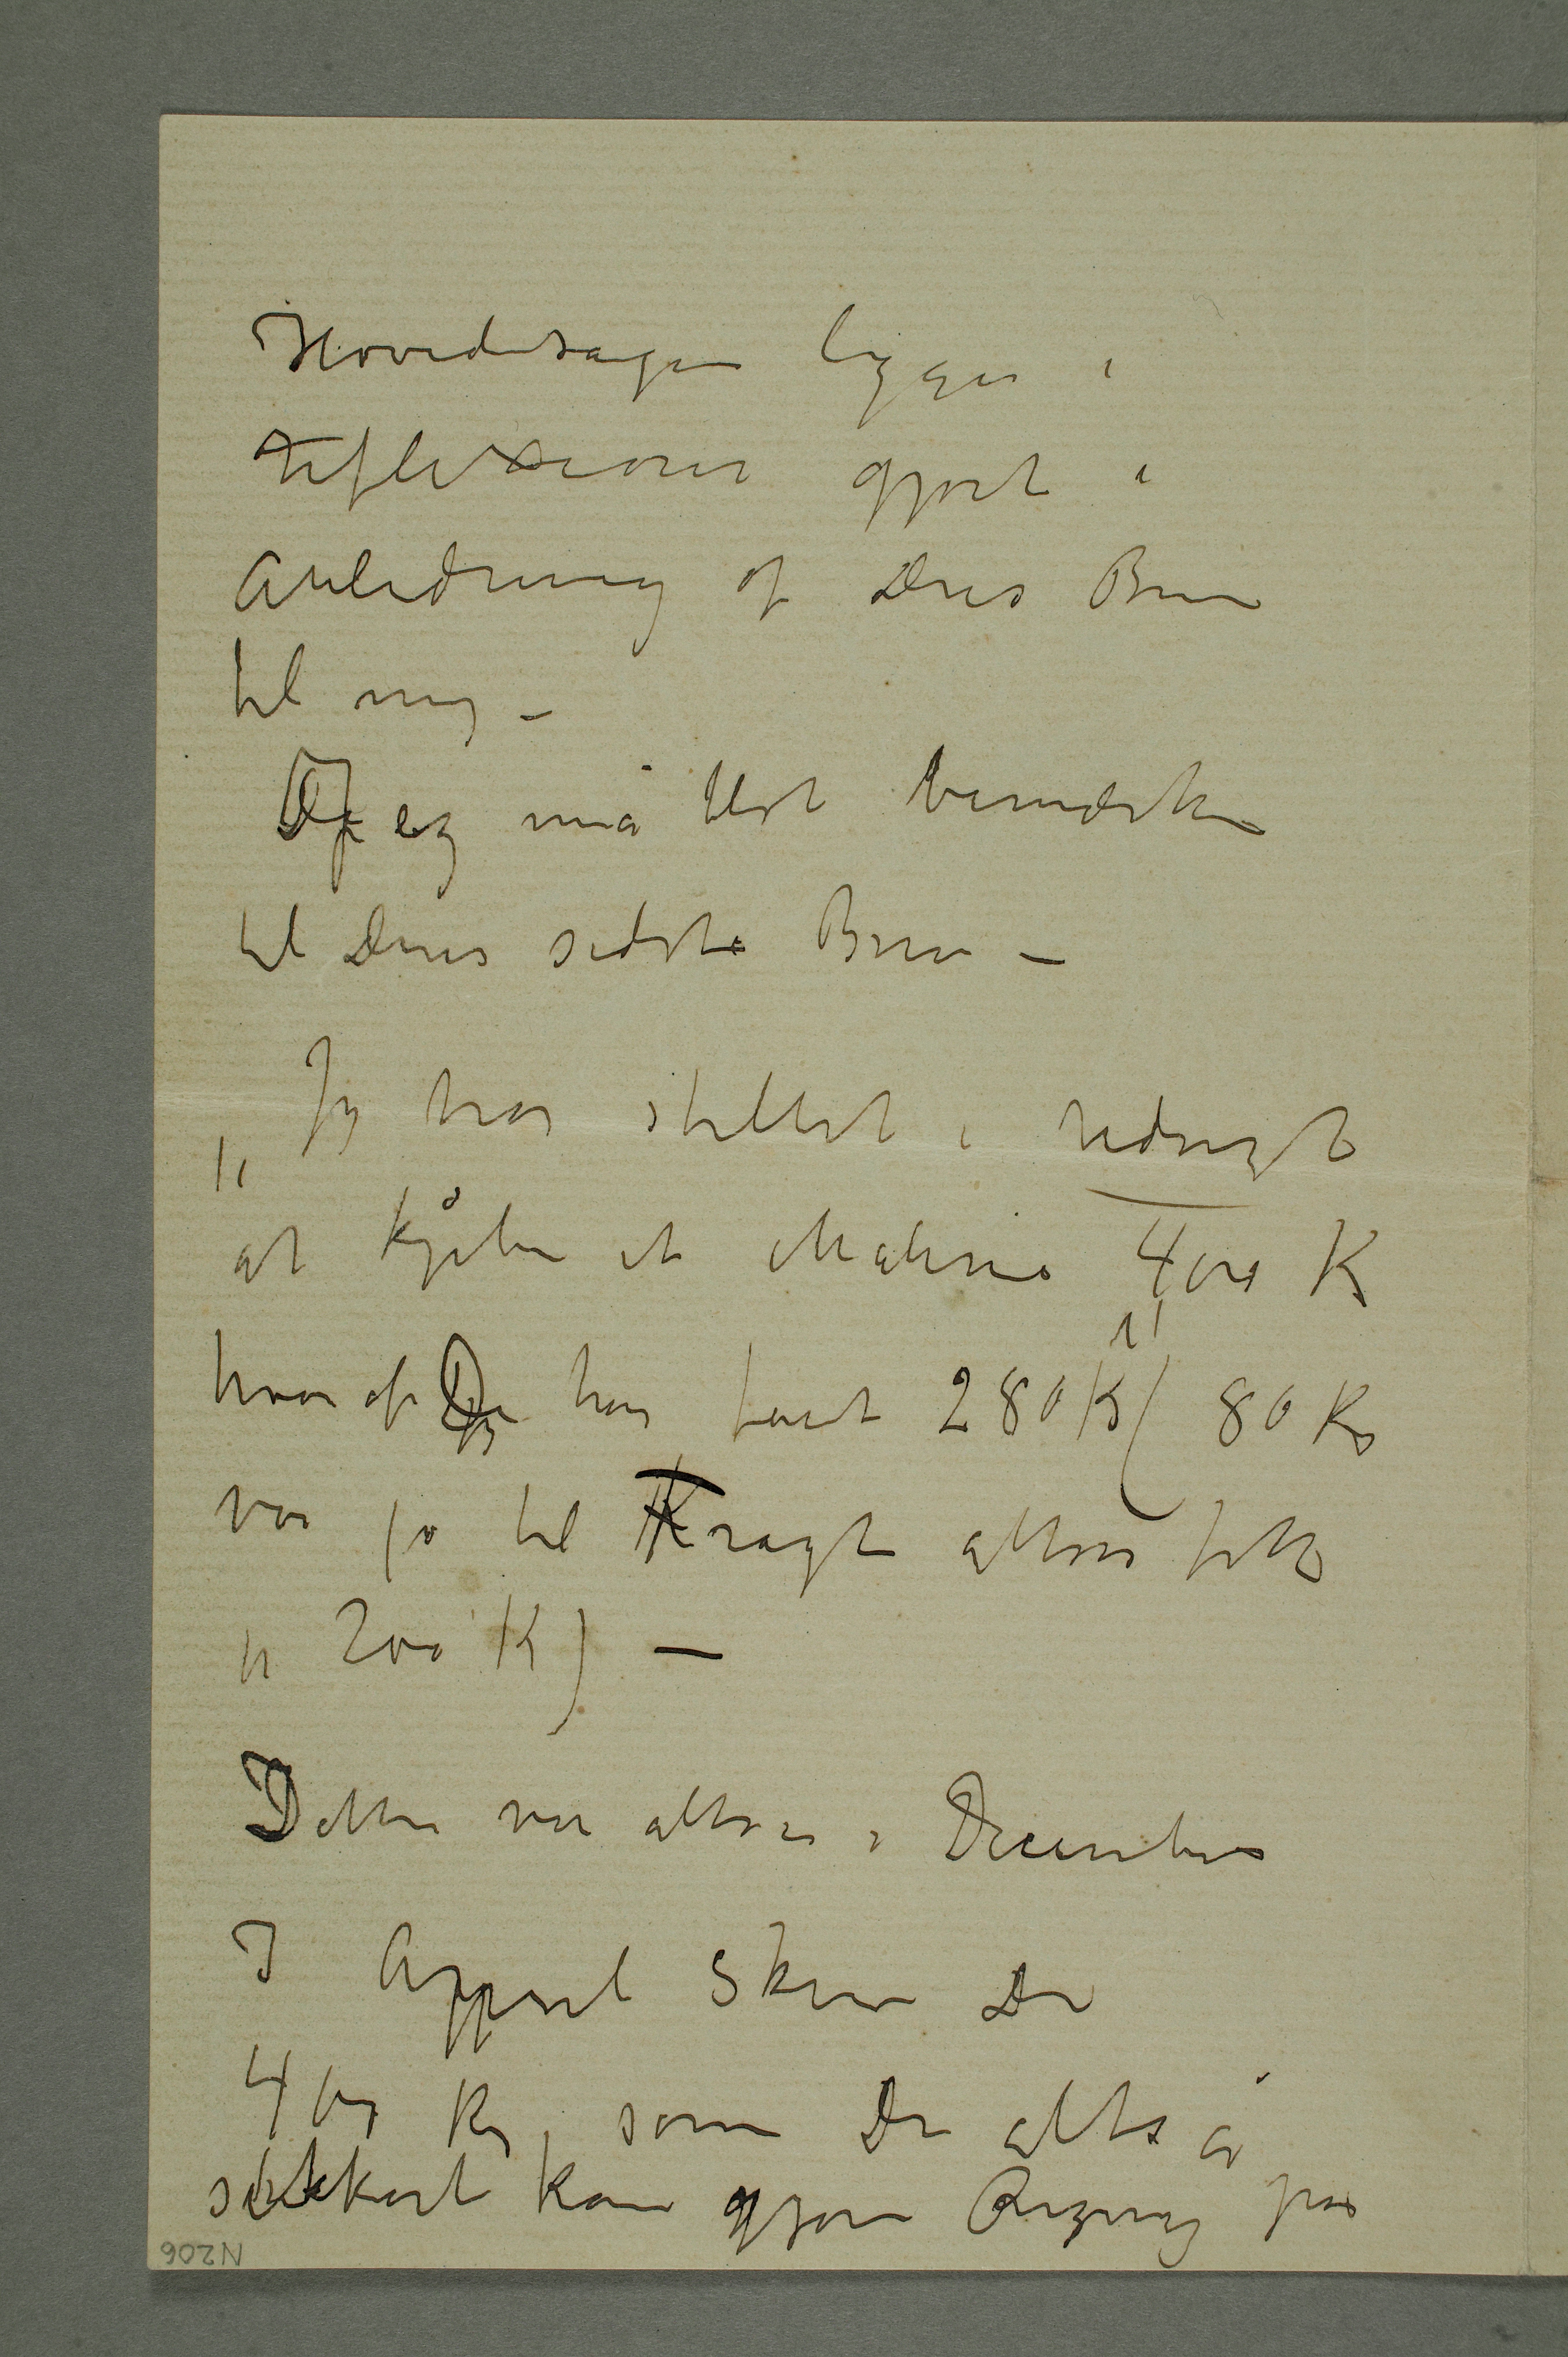 Hovedsagen ligger i
reflexioner gjort i
Anledning af Deres Brev
til mig –
Jeg må blot bemærke
til Deres sidste Brev –
„Jeg har stillet i udsigt
at kjøbe et Maleri 400 K
hvoraf De har faaet 280 K“ (80 Kr
var jo til Kragh altsaa fik
200 K) –
Dette var altsaa i December
I Appril skrev De
400 Kr, som De altså
sikkert kan gjøre Regning paa
N206